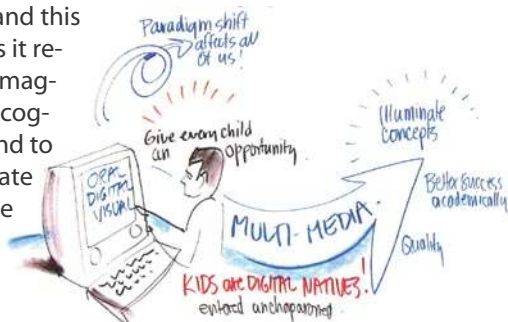 and this
s it re-
mag-
cog-
nd to
ate
e
Paradigm shift
affects all
of us!
Give every child
an opportunity
ORAL
DIGITAL
VISUAL
MULTI-MEDIA.
KIDS are DIGITAL NATIVES!
entered unchaperoned
Illuminate
concepts
Better success
academically
Quality